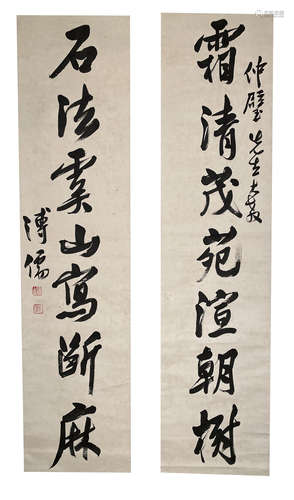 霜清茂苑渲朝樹
仲璧先生大教
石法雲山寫斷麻
溥儒